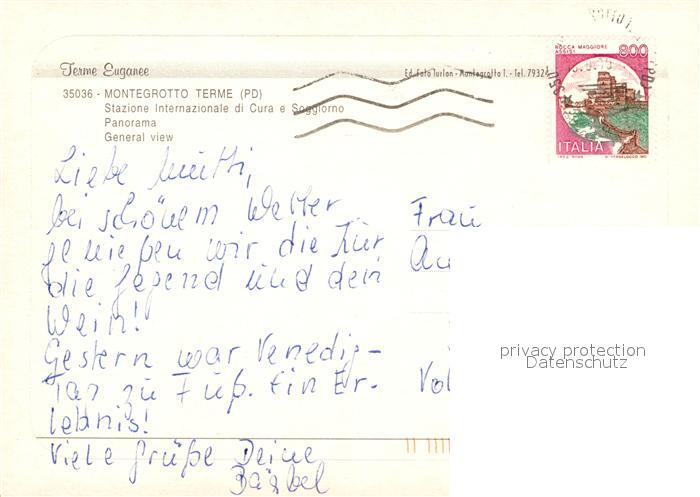 Terme Euganee
Ed. Foto Turlon - Montegrotto T. - Tel. 79324
35036 - MONTEGROTTO TERME (PD)
Stazione Internazionale di Cura e Soggiorno
Panorama
General view
ROCCA MAGGIORE
ASSISI
800
ITALIA
Liebe Mutti,
bei schönem Wetter
genießen wir die Kur
die Gegend und den
Wein!
Gestern war Venedig-
Tag zu Fuß. Ein Er-
lebnis!
Viele Grüße Deine
Bärbel
Frau
privacy protection
Datenschutz